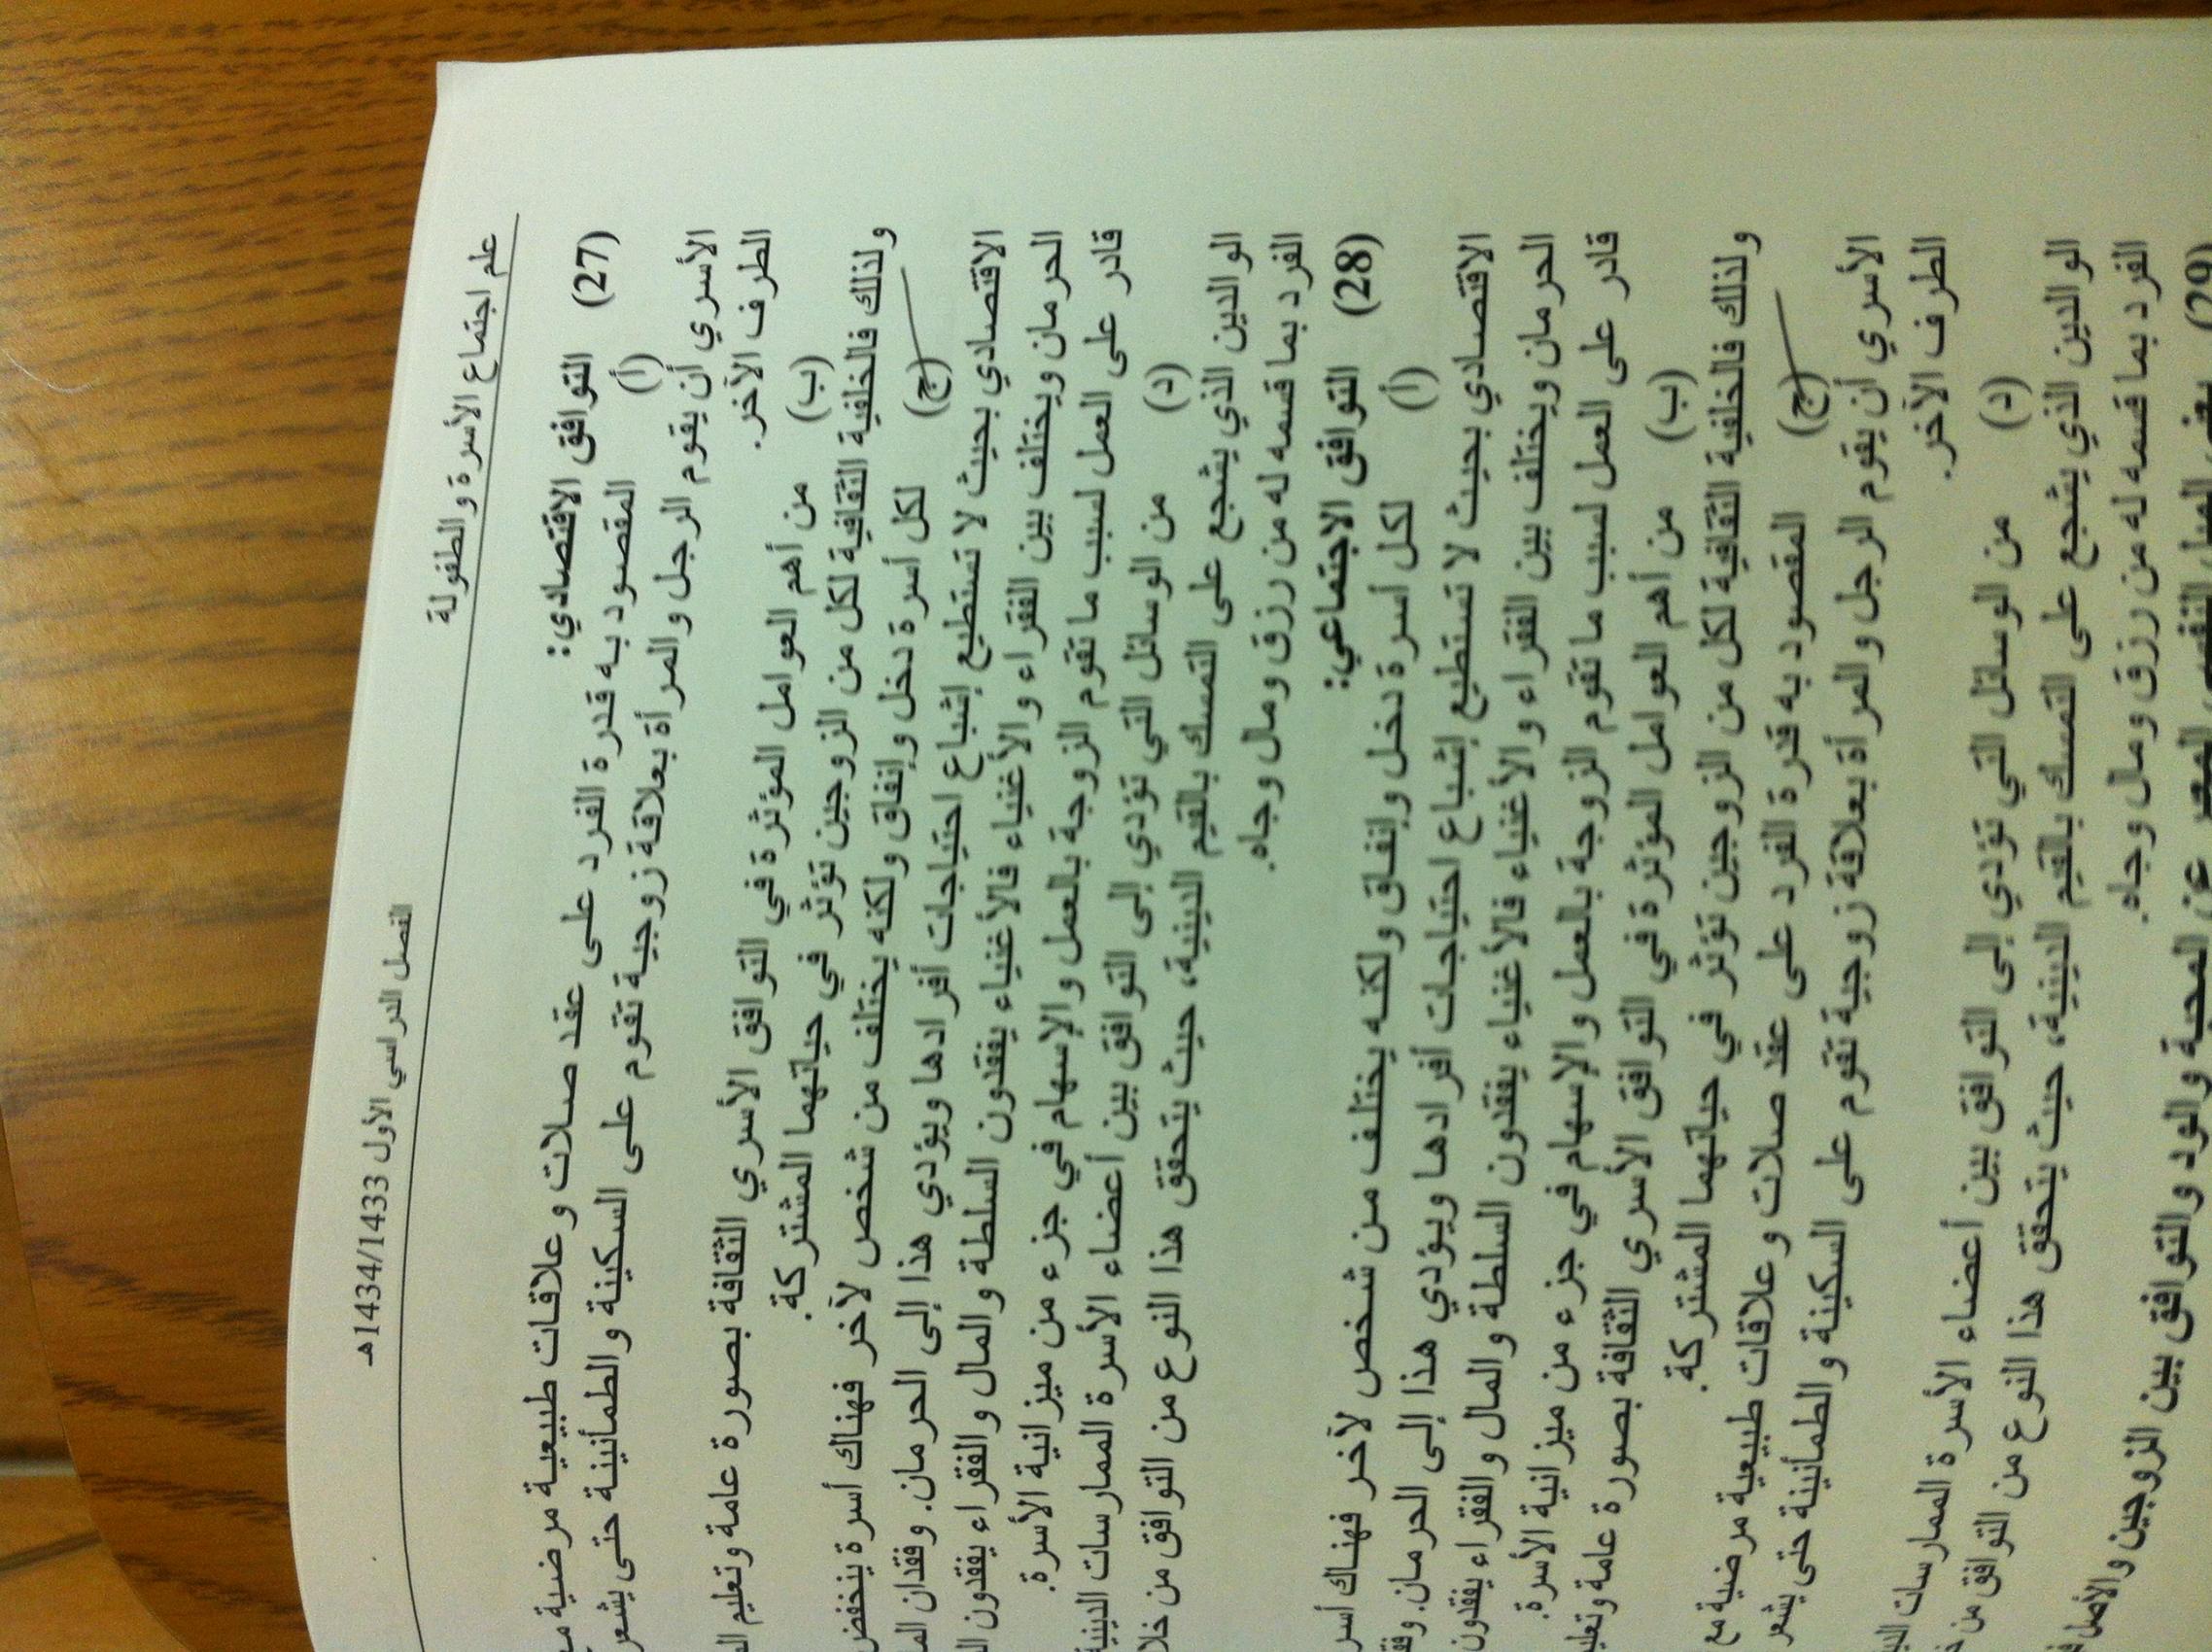 علم اجتماع الأسرة والطفولة
الفصل الدراسي الأول 1434/1433هـ
(27) التوافق الاقتصادي:
(أ) المقصود به قدرة الفرد على عقد صلات وعلاقات طبيعية مرضية
الأسري أن يقوم الرجل والمرأة بعلاقة زوجية تقوم على السكينة والطمأنينة حتى يشعر
الطرف الآخر.
(ب) من أهم العوامل المؤثرة في التوافق الأسري الثقافة بصورة عامة وتعليم
ولذلك فالخلفية الثقافية لكل من الزوجين تؤثر في حياتهما المشتركة.
(ج) لكل أسرة دخل وإنفاق ولكنه يختلف من شخص لآخر فهناك أسرة ينخفض
الاقتصادي بحيث لا تستطيع إشباع احتياجات أفرادها ويؤدي هذا إلى الحرمان. وفقدان
الحرمان ويختلف بين الفقراء والأغنياء فالأغنياء يفقدون السلطة والمال والفقراء يفقدون
قادر على العمل لسبب ما تقوم الزوجة بالعمل والإسهام في جزء من ميزانية الأسرة.
(د) من الوسائل التي تؤدي إلى التوافق بين أعضاء الأسرة الممارسات الدينية
الوالدين الذي يشجع على التمسك بالقيم الدينية، حيث يتحقق هذا النوع من التوافق من
الفرد بما قسمه له من رزق ومال وجاه.
(28) التوافق الاجتماعي:
(أ) لكل أسرة دخل وإنفاق ولكنه يختلف من شخص لآخر فهناك
الاقتصادي بحيث لا تستطيع إشباع احتياجات أفرادها ويؤدي هذا إلى الحرمان.
الحرمان ويختلف بين الفقراء والأغنياء فالأغنياء يفقدون السلطة والمال والفقراء يفقدون
قادر على العمل لسبب ما تقوم الزوجة بالعمل والإسهام في جزء من ميزانية الأسرة.
(ب) من أهم العوامل المؤثرة في التوافق الأسري الثقافة بصورة عامة
ولذلك فالخلفية الثقافية لكل من الزوجين تؤثر في حياتهما المشتركة.
(ج) المقصود به قدرة الفرد على عقد صلات وعلاقات طبيعية مرضية مع
الأسري أن يقوم الرجل والمرأة بعلاقة زوجية تقوم على السكينة والطمأنينة حتى يشعر
الطرف الآخر.
(د) من الوسائل التي تؤدي إلى التوافق بين أعضاء الأسرة الممارسات
الوالدين الذي يشجع على التمسك بالقيم الدينية، حيث يتحقق هذا النوع من التوافق من
الفرد بما قسمه له من رزق ومال وجاه.
(29) الميل النفسي المعبر عن المحبة والود والتوافق بين الزوجين والأصل